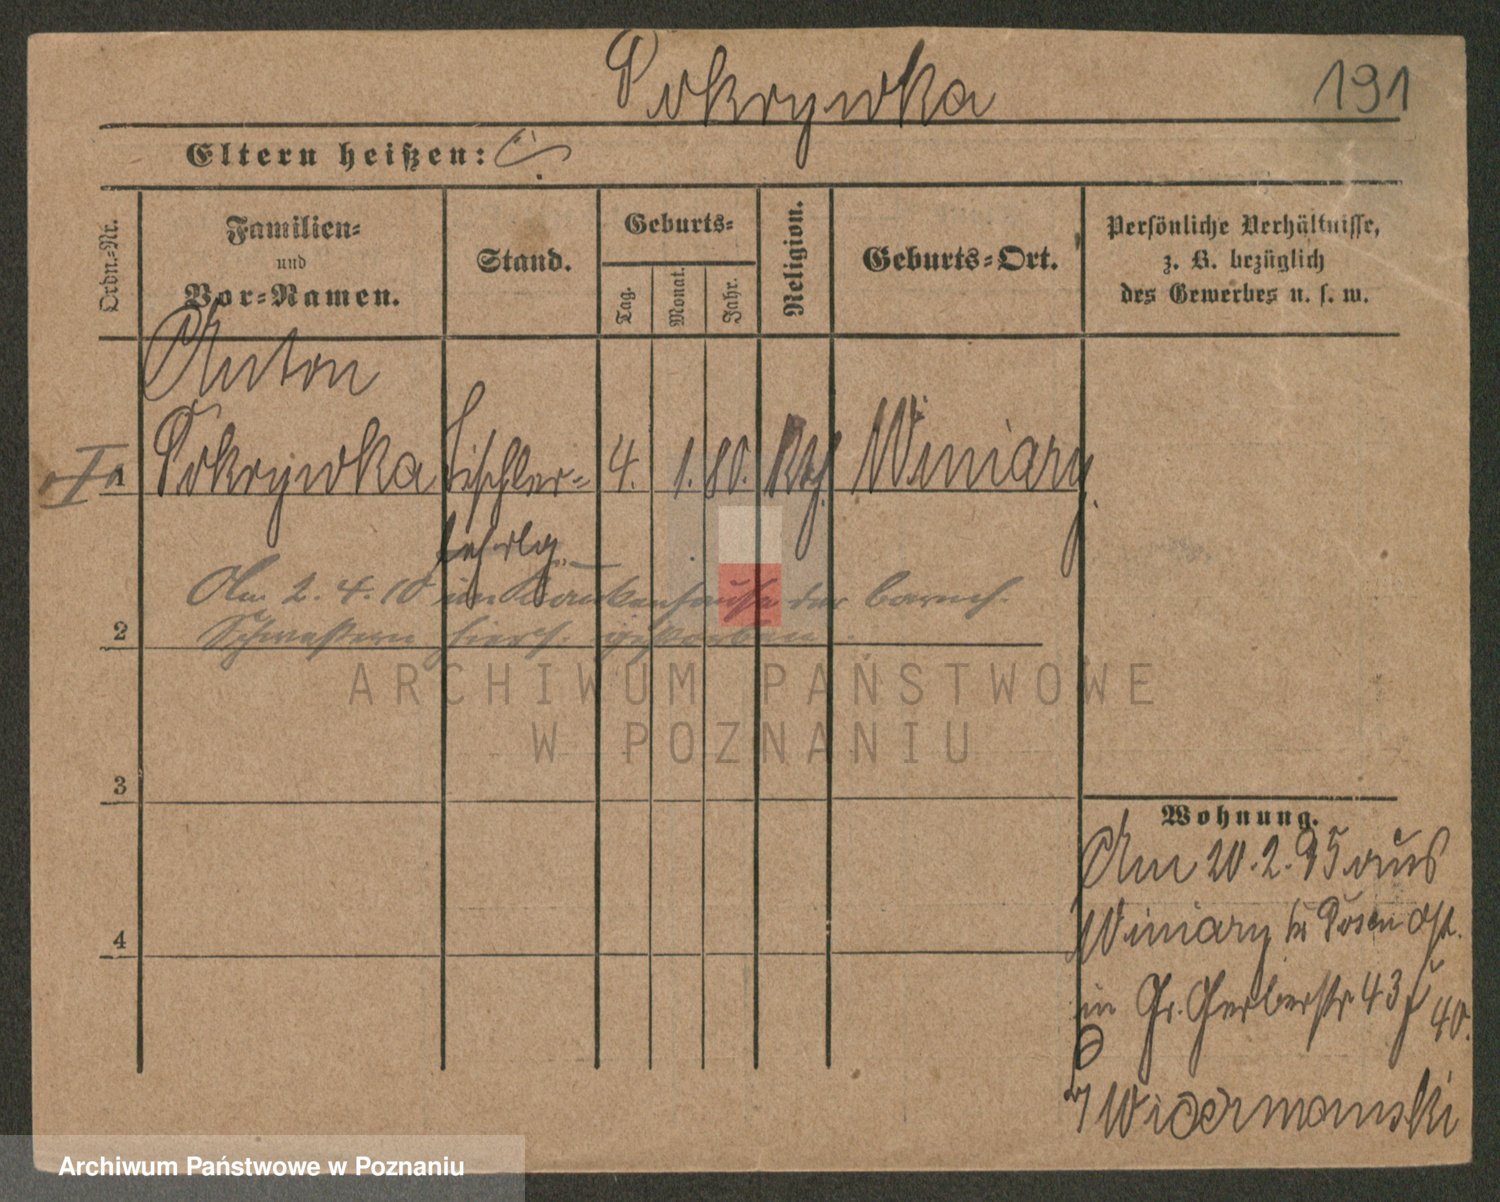 Pokrywka
191
Eltern heißen:
Ordn.-Nr.
Familien-
und
Vor-Namen.
Stand.
Geburts-
Tag.
Monat.
Jahr.
Religion.
Geburts-Ort.
Persönliche Verhältnisse,
z. B. bezüglich
des Gewerbes u. s. w.
Anton
1 Pokrywka Tischler- 4. 1. 80. Kth. Winiary
lehrlg.
Am 2. 4. 10 im Krankenhause der barmh.
2 Schwestern hiers. gestorben
ARCHIWUM PAŃSTWOWE
W POZNANIU
3
4
Wohnung.
Am 20.2.95 aus
Winiary bei Posen Ost.
in Gr. Gerberstr 43
40.
Widermanski
Archiwum Państwowe w Poznaniu